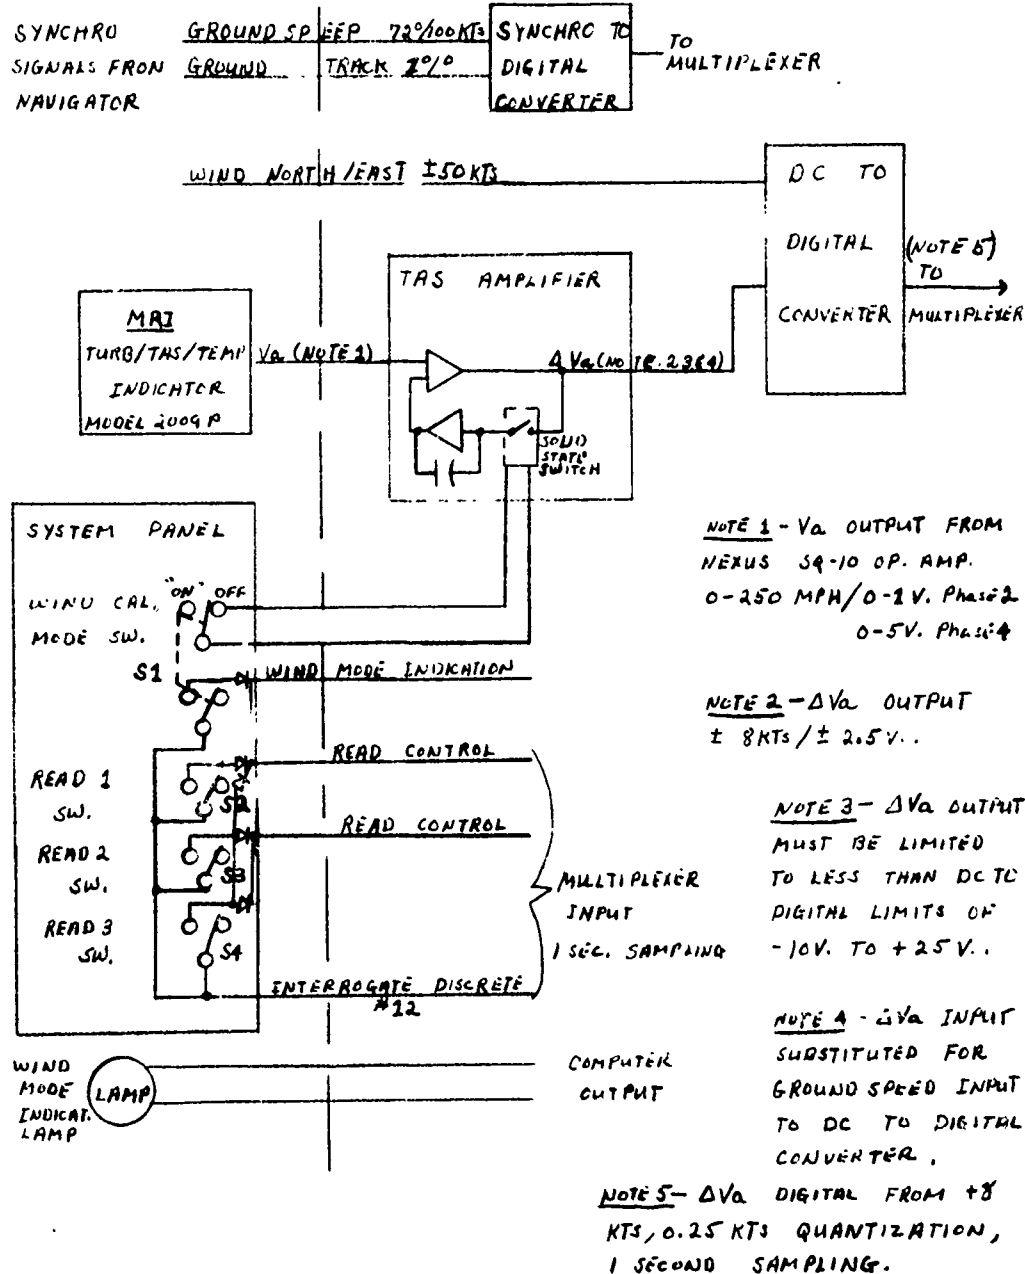 SYNCHRO
SIGNALS FROM
NAVIGATOR
GROUND SPEED 72°/100KTS
GROUND TRACK 1°/°
SYNCHRO TO
DIGITAL
CONVERTER
TO
MULTIPLEXER
WIND NORTH/EAST ±50KTS
DC TO
DIGITAL
CONVERTER
(NOTE 5)
TO
MULTIPLEXER
TAS AMPLIFIER
MRI
TURB/TAS/TEMP
INDICATOR
MODEL 2009P
Va (NOTE 1)
Δ Va (NOTE. 2 3 & 4)
SOLID
STATE
SWITCH
SYSTEM PANEL
"ON" OFF
WIND CAL.
MODE SW.
S1
WIND MODE INDICATION
READ 1
SW.
S2
READ CONTROL
READ 2
SW.
S3
READ CONTROL
READ 3
SW.
S4
INTERROGATE DISCRETE
#12
MULTIPLEXER
INPUT
1 SEC. SAMPLING
WIND
MODE
INDICAT.
LAMP
LAMP
COMPUTER
OUTPUT
NOTE 1 - Va OUTPUT FROM
NEXUS SQ-10 OP. AMP.
0-250 MPH/0-1V. Phase 2
0-5V. Phase 4
NOTE 2 - ΔVa OUTPUT
± 8KTs / ± 2.5V..
NOTE 3 - ΔVa OUTPUT
MUST BE LIMITED
TO LESS THAN DC TO
DIGITAL LIMITS OF
-10V. TO +25V..
NOTE 4 - ΔVa INPUT
SUBSTITUTED FOR
GROUND SPEED INPUT
TO DC TO DIGITAL
CONVERTER.
NOTE 5 - ΔVa DIGITAL FROM +8
KTS, 0.25 KTS QUANTIZATION,
1 SECOND SAMPLING.